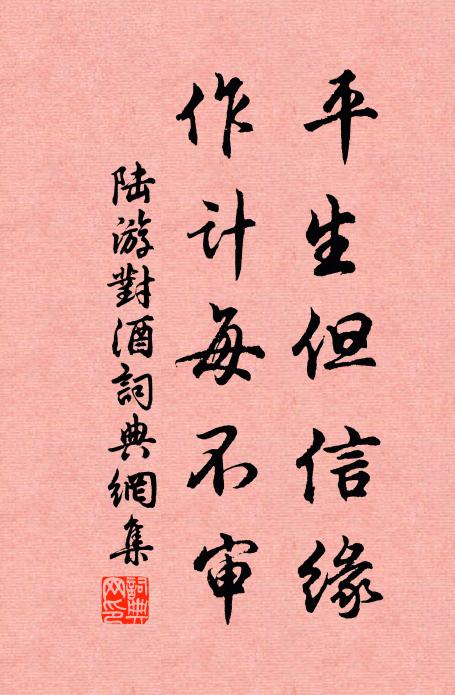 平生但信缘
作计每不审
陆游對酒詞典網集
詞典网印